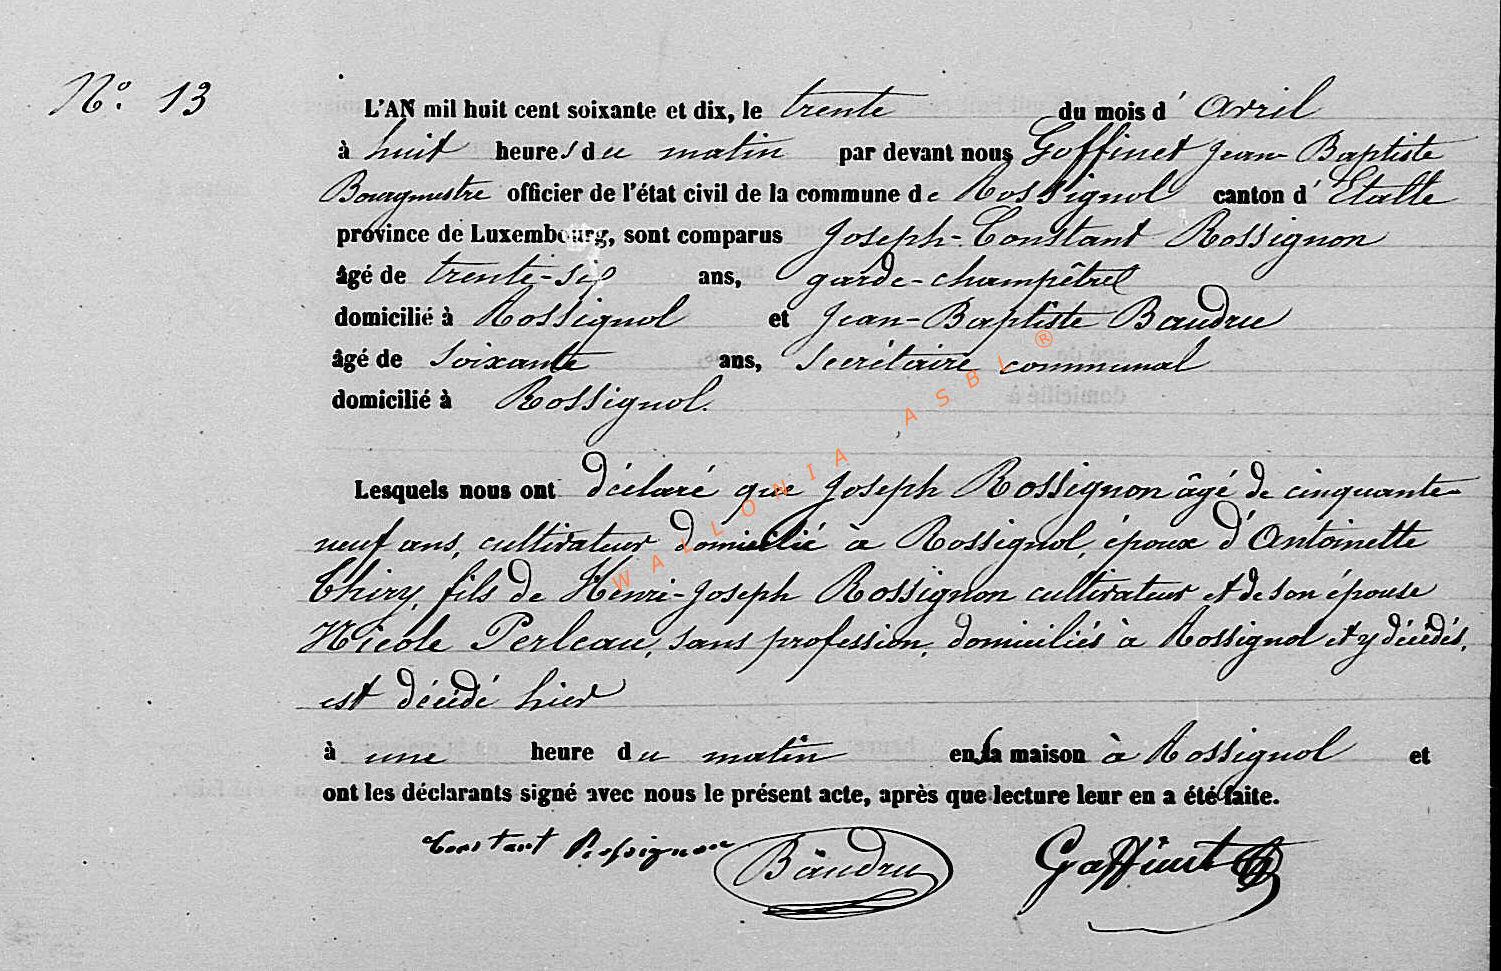 N.º 13
L'AN mil huit cent soixante et dix, le trente du mois d' avril
à huit heures du matin par devant nous Goffinet Jean-Baptiste
Bourgmestre officier de l'état civil de la commune de Rossignol canton d' Etalle
province de Luxembourg, sont comparus Joseph-Constant Rossignon
âgé de trente-six ans, garde-champêtre
domicilié à Rossignol et Jean-Baptiste Baudru
âgé de soixante ans, secrétaire communal
domicilié à Rossignol.
Lesquels nous ont déclaré que Joseph Rossignon âgé de cinquante-
neuf ans, cultivateur domicilié à Rossignol, époux d'Antoinette
Thiry, fils de Henri-Joseph Rossignon cultivateur et de son épouse
Nicole Perleau, sans profession, domiciliés à Rossignol et y décédés,
est décédé hier
à une heure du matin en sa maison à Rossignol et
ont les déclarants signé avec nous le présent acte, après que lecture leur en a été faite.
Constant Rossignon Baudru Goffinet
WALLONIA ASBL ®